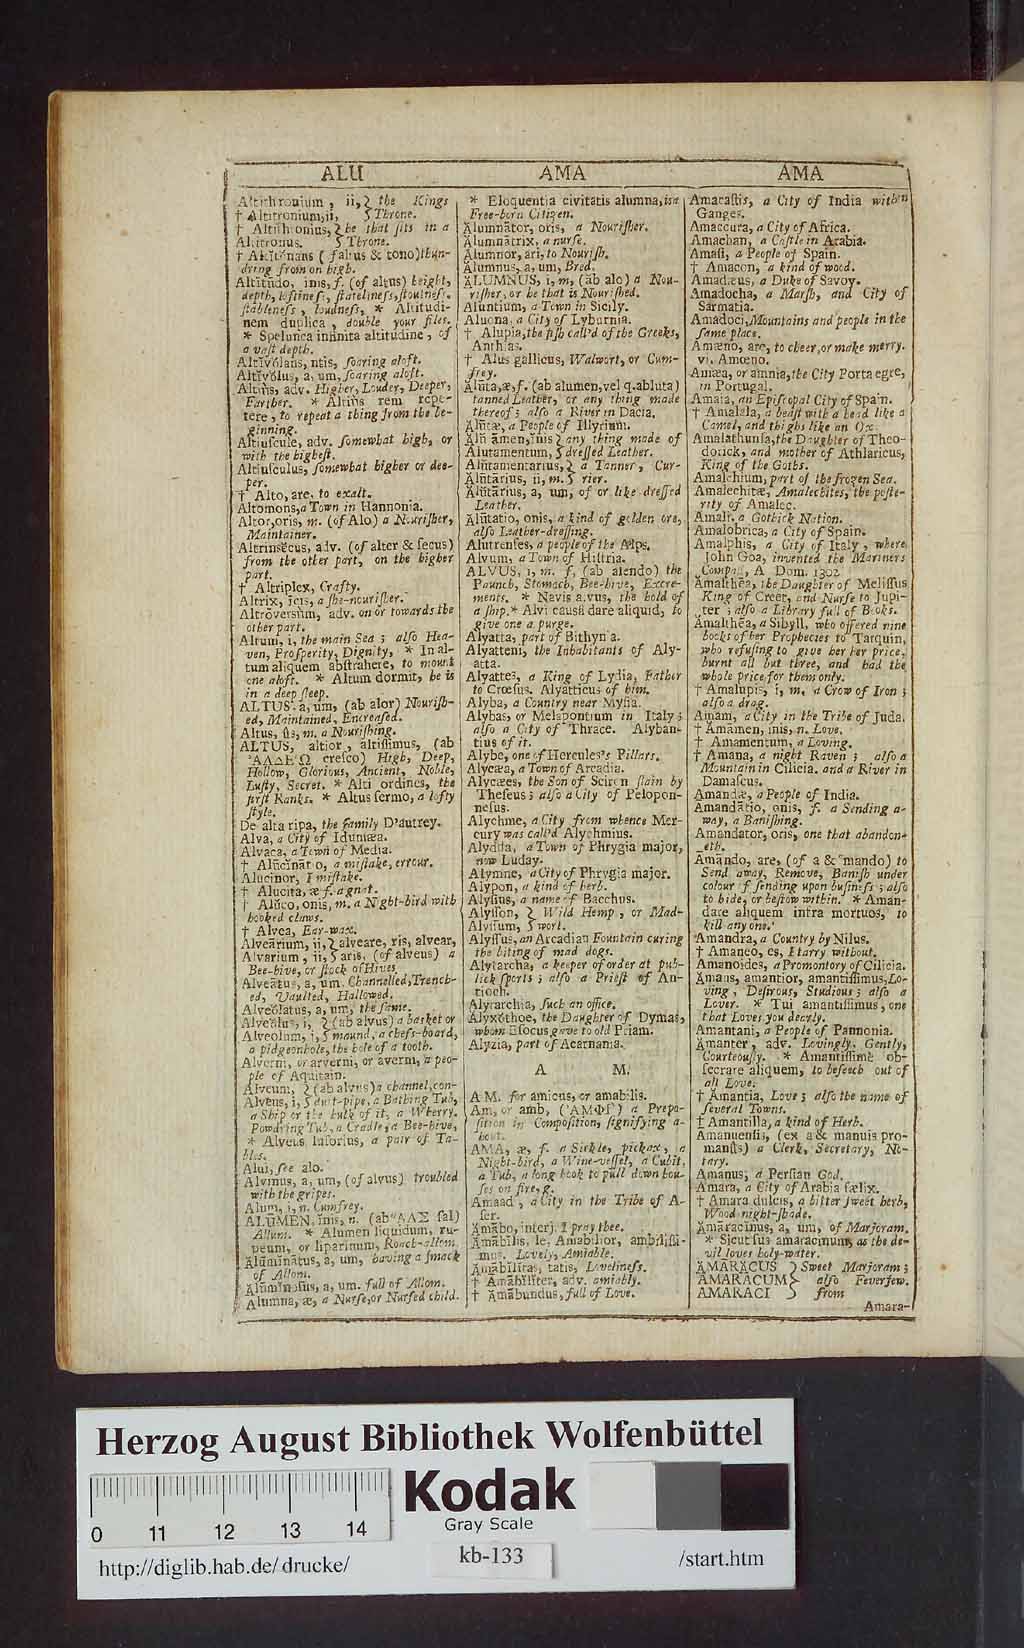 ALU
AMA
AMA
Altithronium, ii, } the Kings
† Altitronium, ii, } Throne.
† Altithronius, } he that sits in a
Altitronus. } Throne.
† Altĭtŏnans (falius & tono) thun-
dring from on high.
Altĭtūdo, inis, f. (of altus) height,
depth, loftiness, stateliness, stoutness,
stableness, loudness, * Altitudi-
nem duplica, double your files.
* Spelunca infinita altitudine, of
a vast depth.
Altĭvŏlans, ntis, soaring aloft.
Altĭvŏlus, a, um, soaring aloft.
Altiùs, adv. Higher, Louder, Deeper,
Farther. * Altiùs rem repe-
tere, to repeat a thing from the be-
ginning.
Altiuscule, adv. somewhat high, or
with the highest.
Altiusculus, somewhat higher or dee-
per.
† Alto, are, to exalt.
Altomons, a Town in Hannonia.
Altor, oris, m. (of Alo) a Nourisher,
Maintainer.
Altrinsĕcus, adv. (of alter & secus)
from the other part, on the higher
part.
† Altriplex, Crafty.
Altrix, īcis, a she-nourisher.
Altrŏversùm, adv. on or towards the
other part.
Altum, i, the main Sea; also Hea-
ven, Prosperity, Dignity, * In al-
tum aliquem abstrahere, to mount
one aloft. * Altum dormit, he is
in a deep sleep.
ALTUS, a, um, (ab alor) Nourish-
ed, Maintained, Encreased.
Altus, ûs, m. a Nourishing.
ALTUS, altior, altissimus, (ab
ʼΑΛΔΕʼΩ cresco) High, Deep,
Hollow, Glorious, Ancient, Noble,
Lusty, Secret. * Alti ordines, the
first Ranks. * Altus sermo, a lofty
style.
De alta ripa, the family D'autrey.
Alva, a City of Idumæa.
Alvaca, a Town of Media.
† Alūcĭnatio, a mistake, errour.
Alucinor, I mistake.
† Alucita, æ f. a gnat.
† Alūco, onis, m. a Night-bird with
hooked claws.
† Alvea, Ear-wax.
Alveārium, ii, } alveare, ris, alvear,
Alvarium, ii, } aris, (of alveus) a
Bee-hive, or stock of Hives.
Alveātus, a, um. Channelled, Trench-
ed, Vaulted, Hallowed.
Alveŏlatus, a, um, the same.
Alveŏlus, i, } (ab alvus) a basket or
Alveolum, i, } maund, a chess-board,
a pidgeonhole, the hole of a tooth.
Alverni, or arverni, or averni, a peo-
ple of Aquitain.
Alveum, } (ab alvus) a channel, con-
Alveus, i, } duit-pipe, a Bathing Tub,
a Ship or the bulk of it, a Wherry.
Powdring Tub, a Cradle, a Bee-hive,
* Alveus lusorius, a pair of Ta-
bles.
Alui, see alo.
Alvinus, a, um, (of alvus) troubled
with the gripes.
Alum, i, n. Cumfrey.
ALŪMEN, ĭnis, n. (ab ʽΑΛΣ sal)
Allum. * Alumen liquidum, ru-
peum, or liparinum, Roach-allom.
Alūmĭnātus, a, um, having a smack
of Allom.
Alūmĭnōsus, a, um. full of Allom.
Alumna, æ, a Nurse, or Nursed child.
* Eloquentia civitatis alumna, is a
Free-born Citizen.
Ălumnātor, oris, a Nourisher.
Ălumnātrix, a nurse.
Ălumnor, ari, to Nourish.
Ălumnus, a, um, Bred.
ĂLUMNUS, i, m, (ab alo) a Nou-
risher, or he that is Nourished.
Aluntium, a Town in Sicily.
Aluona, a City of Lyburnia.
† Alupia, the fish call'd of the Greeks,
Anthias.
† Alus gallicus, Walwort, or Cum-
frey.
Alūta, æ, f. (ab alumen, vel q. abluta)
tanned Leather, or any thing made
thereof; also a River in Dacia.
Alūtæ, a People of Illyrium.
Alūtāmen, ĭnis } any thing made of
Alutamentum, } dressed Leather.
Alūtamentarius, } a Tanner, Cur-
Ălūtārius, ii, m. } rier.
Ălūtārius, a, um, of or like dressed
Leather.
Ălūtatio, onis, a kind of golden ore,
also Leather-dressing.
Alutrenses, a people of the Alps.
Alvum, a Town of Histria.
ALVUS, i, m. f. (ab alendo) the
Paunch, Stomach, Bee-hive, Excre-
ments. * Navis alvus, the hold of
a ship. * Alvi causâ dare aliquid, to
give one a purge.
Alyatta, part of Bithynia.
Alyatteni, the Inhabitants of Aly-
atta.
Alyattes, a King of Lydia, Father
to Crœsus. Alyatticus of him.
Alyba, a Country near Mysia.
Alybas, or Metapontium in Italy;
also a City of Thrace. Alyban-
tius of it.
Alybe, one of Hercules's Pillars.
Alycæa, a Town of Arcadia.
Alycæes, the Son of Sciron slain by
Theseus; also a City of Pelopon-
nesus.
Alychme, a City from whence Mer-
cury was call'd Alychmius.
Alydda, a Town of Phrygia major,
now Luday.
Alymne, a City of Phrygia major.
Alypon, a kind of herb.
Alysius, a name of Bacchus.
Alysson, } Wild Hemp, or Mad-
Alvssum, } wort.
Alyssus, an Arcadian Fountain curing
the biting of mad dogs.
Alytarcha, a keeper of order at pub-
lick sports; also a Priest of An-
tioch.
Alytarchia, such an office.
Alyxŏthoe, the Daughter of Dymas,
whom Esocus gave to old Priam.
Alyzia, part of Acarnania.
A M.
AM. for amicus, or amabilis.
Am, or amb, (ʼΑΜΦΙʼ) a Prepo-
sition in Composition, signifying a-
bout.
AMA, æ, f. a Sickle, pickax, a
Night-bird, a Wine-vessel, a Cubit,
a Tub, a long hook to pull down hou-
ses on fire, &.
Amaad, a City in the Tribe of A-
ser.
Amābo, interj. I pray thee.
Amābĭlis, le, Amabilior, ambilissi-
mus. Lovely, Amiable.
Amābilĭtas, tatis, Loveliness.
† Amābĭlĭter, adv. amiably.
† Amābundus, full of Love.
Amacastis, a City of India within
Ganges.
Amaccura, a City of Africa.
Amachan, a Castle in Arabia.
Amasi, a People of Spain.
† Amacon, a kind of wood.
Amadæus, a Duke of Savoy.
Amadocha, a Marsh, and City of
Sarmatia.
Amadoci, Mountains and people in the
same place.
Amæno, are, to cheer, or make merry.
vi. Amœno.
Amæa, or amnia, the City Porta egre,
in Portugal.
Amaia, an Episcopal City of Spain.
† Amalala, a beast with a head like a
Camel, and thighs like an Ox.
Amalathunsa, the Daughter of Theo-
dorick, and mother of Athlaricus,
King of the Goths.
Amalchium, part of the frozen Sea.
Amalechitæ, Amalechites, the poste-
rity of Amalec.
Amalr, a Gothick Nation.
Amalobrica, a City of Spain.
Amalphis, a City of Italy, where
John Goa, invented the Mariners
Compass, A Dom. 1302
Amalthēa, the Daughter of Melissus
King of Creet, and Nurse to Jupi-
ter; also a Library full of Books.
Amalthēa, a Sibyll, who offered nine
books of her Prophecies to Tarquin,
who refusing to give her her price,
burnt all but three, and had the
whole price for them only.
† Amalupis, i, m, a Crow of Iron;
also a drag.
Amam, a City in the Tribe of Juda.
† Amāmen, inis, n. Love.
† Amamentum, a Loving.
† Amana, a night Raven; also a
Mountain in Cilicia. and a River in
Damascus.
Amandæ, a People of India.
Amandātio, onis, f. a Sending a-
way, a Banishing.
Amandator, oris, one that abandon-
eth.
Amando, are, (of a & mando) to
Send away, Remove, Banish under
colour of sending upon business; also
to hide, or bestow within. * Aman-
dare aliquem infra mortuos, to
kill any one.
Amandra, a Country by Nilus.
† Amaneo, es, I tarry without.
Amanoides, a Promontory of Cilicia.
Ămans, amantior, amantissimus, Lo-
ving, Desirous, Studious; also a
Lover. * Tui amantissimus, one
that Loves you dearly.
Amantani, a People of Pannonia.
Amanter, adv. Lovingly, Gently,
Courteously. * Amantissimè ob-
secrare aliquem, to beseech out of
all Love.
† Amantia, Love; also the name of
several Towns.
† Amantilla, a kind of Herb.
Amanuensis, (ex a & manuis pro-
manûs) a Clerk, Secretary, No-
tary.
Amanus, a Persian God.
Amara, a City of Arabia fælix.
† Amara dulcis, a bitter sweet herb,
Wood night-shade.
Ămārăcinus, a, um, of Marjoram.
* Sicut sus amaracinum, as the de-
vil loves holy-water.
ĂMARĂCUS } Sweet Marjoram;
AMARACUM } also Feverfew.
AMARACI } from
Amara-
Herzog August Bibliothek Wolfenbüttel
Kodak
Gray Scale
0 11 12 13 14
http://diglib.hab.de/drucke/
kb-133
/start.htm